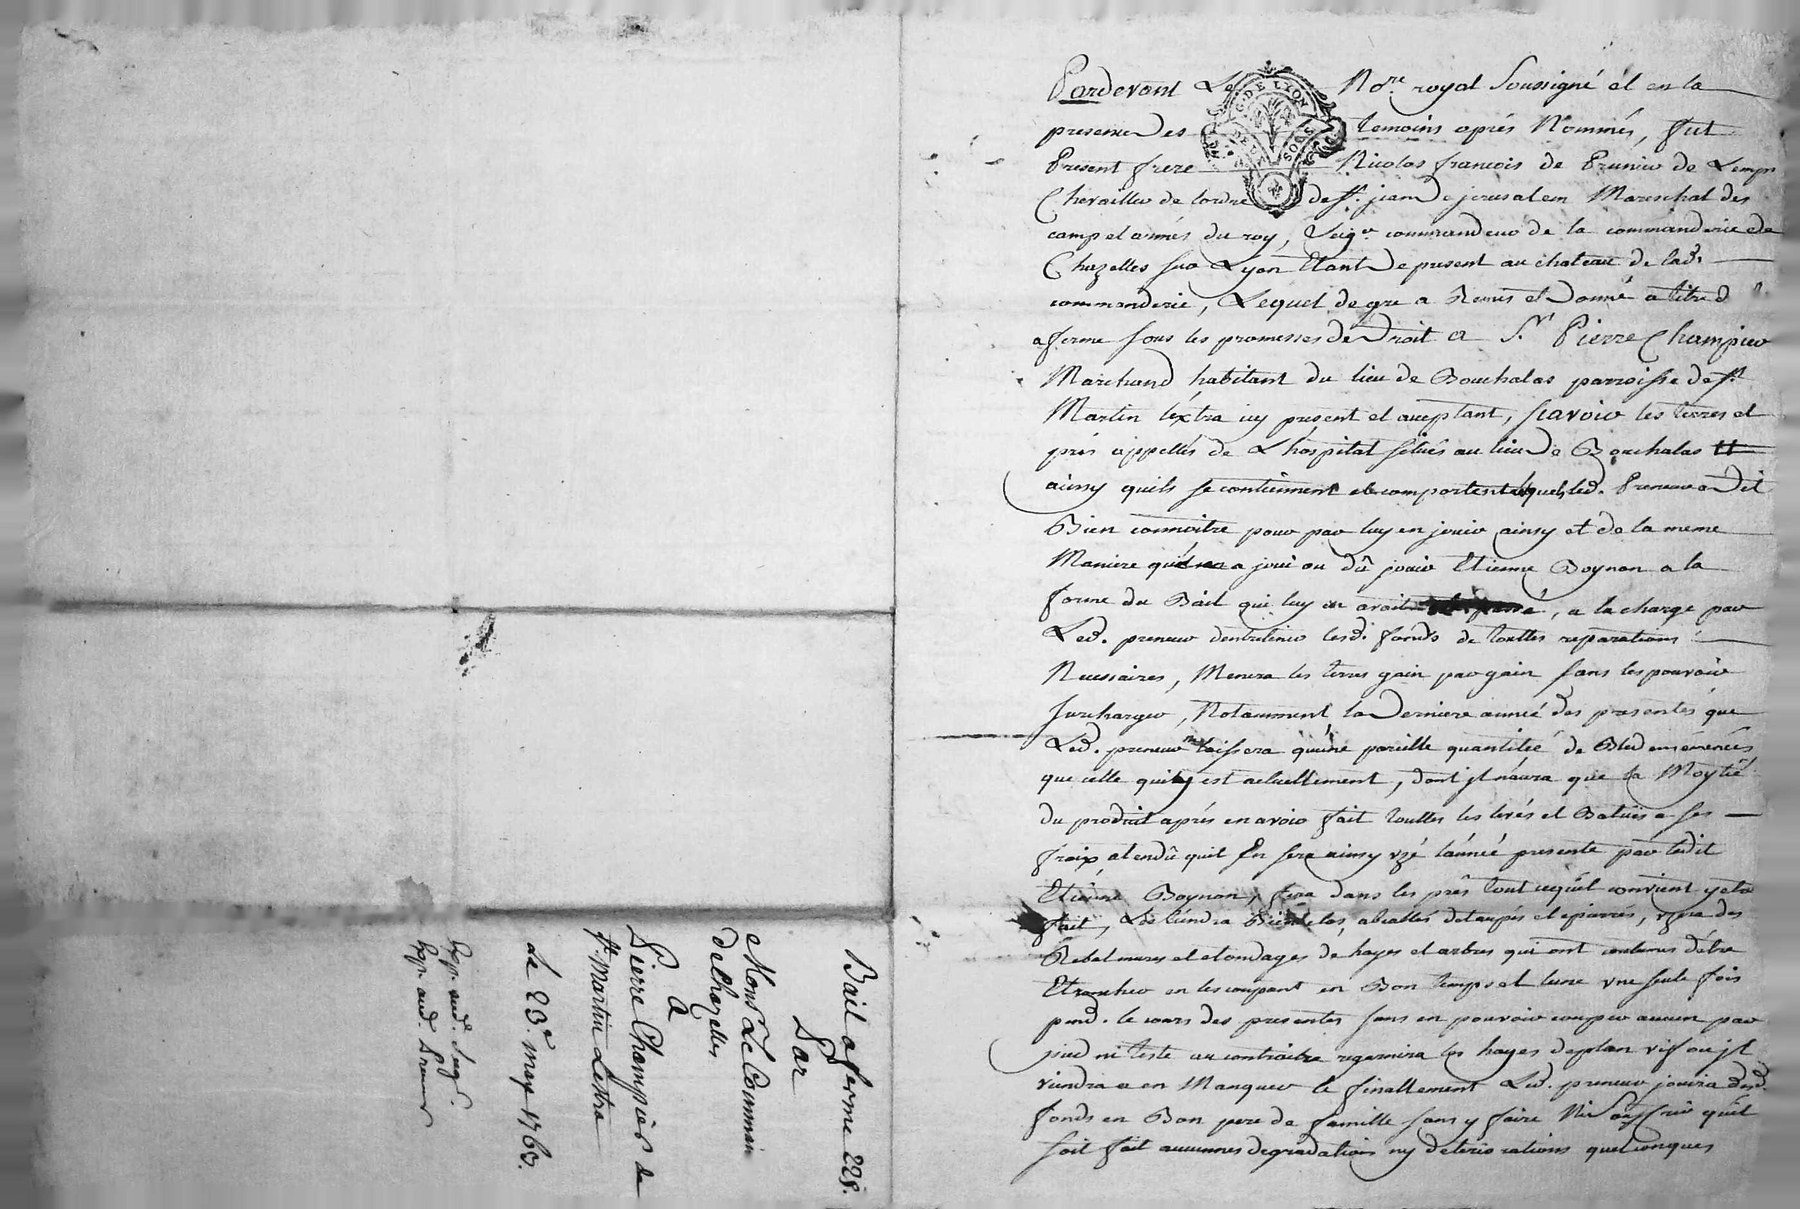 Bail a ferme 22ş.
Par
Mons.r Le Comman
de Chazelles
A
Pierre Champier de
st. martin Lestra
Le 23e. may 1760.
Exp. aud. Seigr.
Exp. aud. Preneur
Pardevant Le No.re royal Soussigné et en la
presence Des temoins aprés Nommés, fut
Present frere Nicolas francois de Prunier de Lemps
Chevaillier de lordre de st. jean De jerusalem Mareschal des
camp et armés du roy, Seigr. commandeur de la commanderie de
Chazelles sur Lyon Etant De present au chateau de lad.
commanderie, Lequel de gre a Remis et Donné a titre d
aferme sous les promesses de Droit a Sr. Pierre Champier
Marchand habitant du lieu de Bouchalas parroisse de st.
Martin lextra icy present et acceptant, scavoir les terres et
prés appellés de Lhospital situés au lieu De Bouchalas
ainsy quils se contiennent et comportent que led. Preneur a Dit
Bien connoitre pour par luy en jouir ainsy et de la meme
Maniere qu'en a joui ou dû jouir Etienne Boynon a la
forme du Bail qui luy en avoit passé, a la charge par
Led. preneur d'entretenir lesd. fonds de touttes reparations
Necessaires, Menera les terres gain par gain sans les pouvoir
surcharger, Notamment la Derniere année des presentes que
Led. preneur n'laissera qu'une pareille quantitée de Bled ensémencés
que celle qui y est actuellement, dont jl n'aura que la Moytié
du produit aprés en avoir fait touttes les levés et Batües a ses
fraix atendû quil En sera ainsy uzé l'année presente par ledit
Etienne Boynon, fera dans les prés tout ce qu'il convient y etre
fait, Les tiendra Biens clos, abeallés detaupés et epierrés, uzera des
Rebatures et etondages de hayes et arbres qui ont coutumes d'être
Etrancher en les coupant en Bon temps et lune une seule fois
pend. le cours des presentes sans en pouvoir couper aucun par
pied ni teste au contraitre regarnira les hayes de plan vif ou jl
viendra a en Manquer Et finallement Led. preneur jouira desd.
fonds en Bon pere de famille sans y faire Ni Souffrir quil
soit fait aucunnes degradations ny deteriorations quelconques